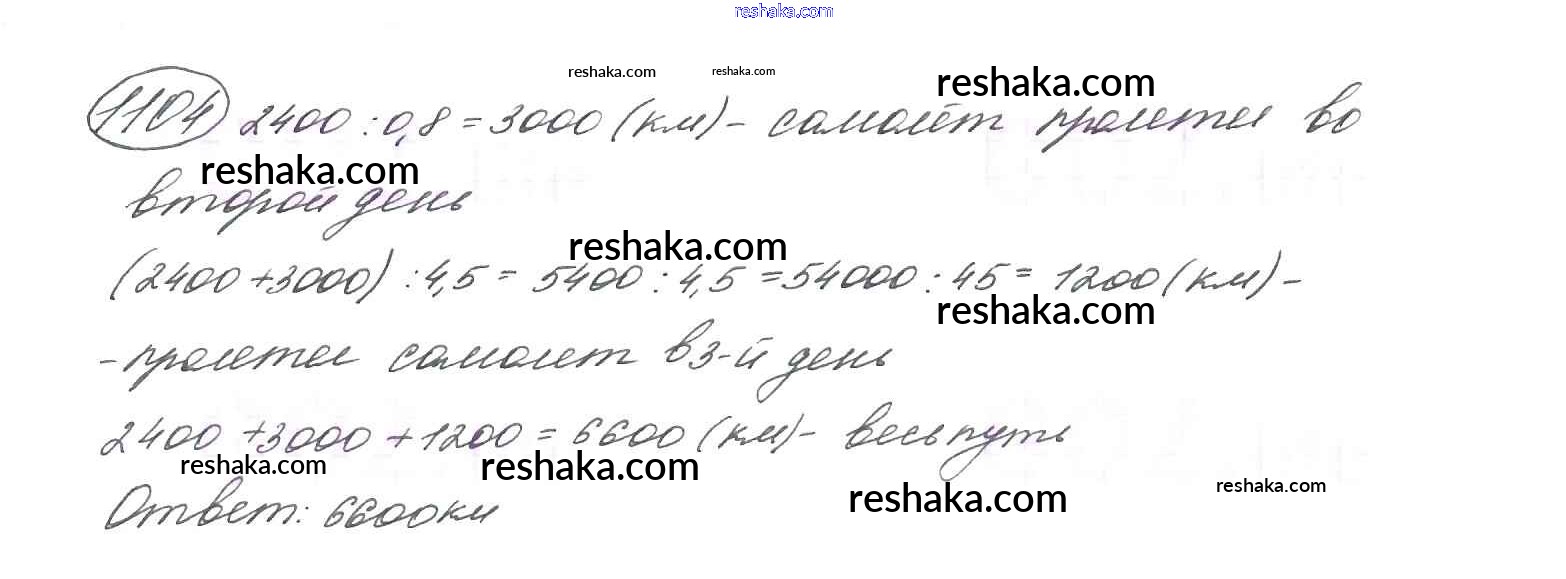 reshaka.com
reshaka.com reshaka.com reshaka.com
1104 2400 : 0,8 = 3000 (км) - самолёт пролетел во
reshaka.com
второй день
reshaka.com
(2400 + 3000) : 4,5 = 5400 : 4,5 = 54000 : 45 = 1200 (км) -
reshaka.com
- пролетел самолет в 3-й день
2400 + 3000 + 1200 = 6600 (км) - весь путь
reshaka.com reshaka.com
reshaka.com reshaka.com
Ответ: 6600 км